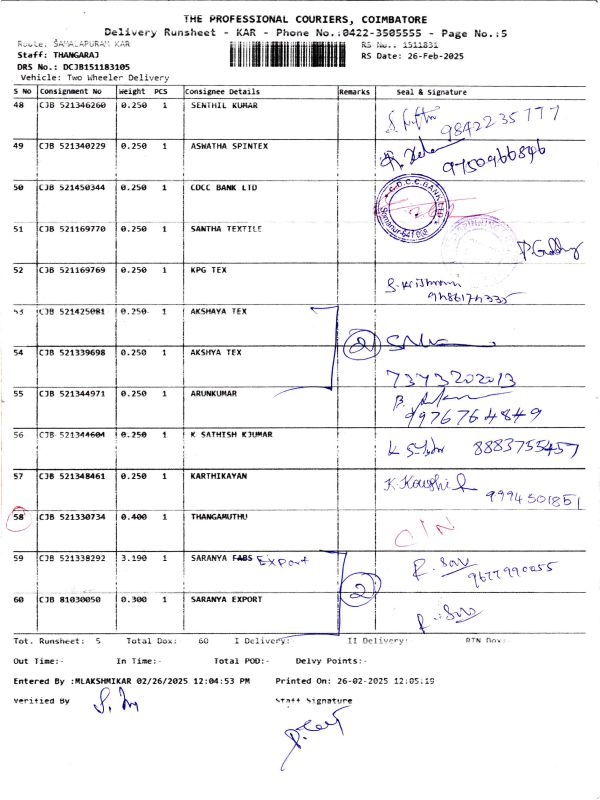 THE PROFESSIONAL COURIERS, COIMBATORE
Delivery Runsheet - KAR - Phone No.:0422-3505555 - Page No.:5
Route: SAMALAPURAM KAR RS No.: 1511831
Staff: THANGARAJ RS Date: 26-Feb-2025
DRS No.: DCJB151183105
Vehicle: Two Wheeler Delivery
S No Consignment No Weight PCS Consignee Details Remarks Seal & Signature
48 CJB 521346260 0.250 1 SENTHIL KUMAR 9842235777
49 CJB 521340229 0.250 1 ASWATHA SPINTEX 9750966846
50 CJB 521450344 0.250 1 CDCC BANK LTD C.D.C.C. BANK LTD
51 CJB 521169770 0.250 1 SANTHA TEXTILE
52 CJB 521169769 0.250 1 KPG TEX
53 CJB 521425081 0.250 1 AKSHAYA TEX
54 CJB 521339698 0.250 1 AKSHYA TEX 2
7373202013
55 CJB 521344971 0.250 1 ARUNKUMAR
9976764849
56 CJB 521344604 0.250 1 K SATHISH KJUMAR 8883755457
57 CJB 521348461 0.250 1 KARTHIKAYAN K. Koushik
9994501851
58 CJB 521330734 0.400 1 THANGAMUTHU
59 CJB 521338292 3.190 1 SARANYA FABS Export
9677990055
2
60 CJB 81030050 0.300 1 SARANYA EXPORT
Tot. Runsheet: 5 Total Dox: 60 I Delivery: II Delivery: RTN Dox:-
Out Time:- In Time:- Total POD:- Delvy Points:-
Entered By :MLAKSHMIKAR 02/26/2025 12:04:53 PM Printed On: 26-02-2025 12:05:19
Verified By Staff Signature